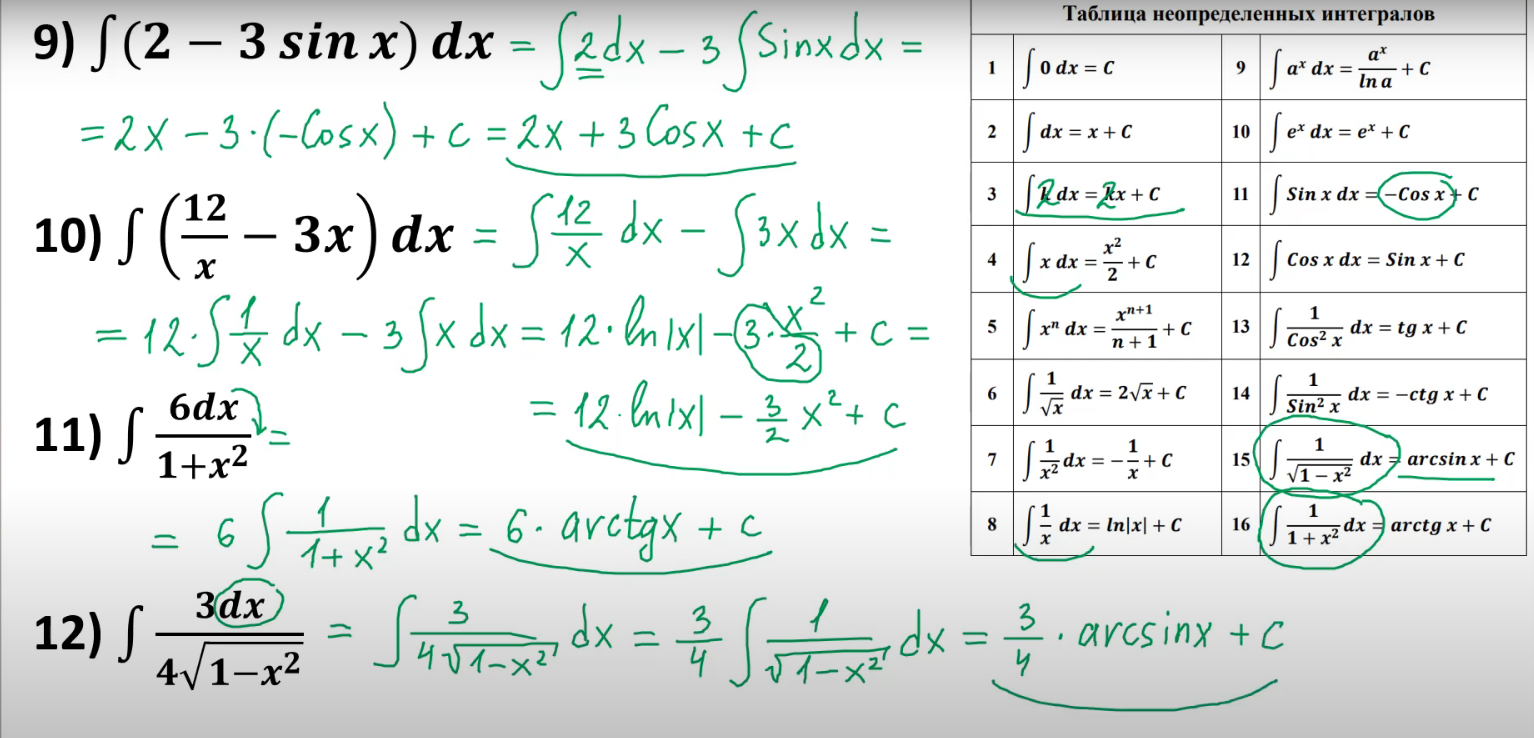 9) ∫(2 − 3 sin x) dx = ∫2dx − 3 ∫Sinxdx =
= 2x − 3·(−Cosx) + c = 2x + 3 Cosx + c
10) ∫(12/x − 3x) dx = ∫12/x dx − ∫3x dx =
= 12·∫1/x dx − 3∫x dx = 12·ln|x| − 3·x²/2 + c =
= 12·ln|x| − 3/2 x² + c
11) ∫ 6dx/1+x² =
= 6 ∫ 1/1+x² dx = 6· arctgx + c
12) ∫ 3dx/4√1−x² = ∫ 3/4√1−x² dx = 3/4 ∫ 1/√1−x² dx = 3/4 · arcsinx + C
Таблица неопределенных интегралов
1 ∫ 0 dx = C 9 ∫ aˣ dx = aˣ/ln a + C
2 ∫ dx = x + C 10 ∫ eˣ dx = eˣ + C
3 ∫ 2 dx = 2x + C 11 ∫ Sin x dx = −Cos x + C
4 ∫ x dx = x²/2 + C 12 ∫ Cos x dx = Sin x + C
5 ∫ xⁿ dx = xⁿ⁺¹/n + 1 + C 13 ∫ 1/Cos² x dx = tg x + C
6 ∫ 1/√x dx = 2√x + C 14 ∫ 1/Sin² x dx = −ctg x + C
7 ∫ 1/x² dx = −1/x + C 15 ∫ 1/√1 − x² dx = arcsin x + C
8 ∫ 1/x dx = ln|x| + C 16 ∫ 1/1 + x² dx = arctg x + C